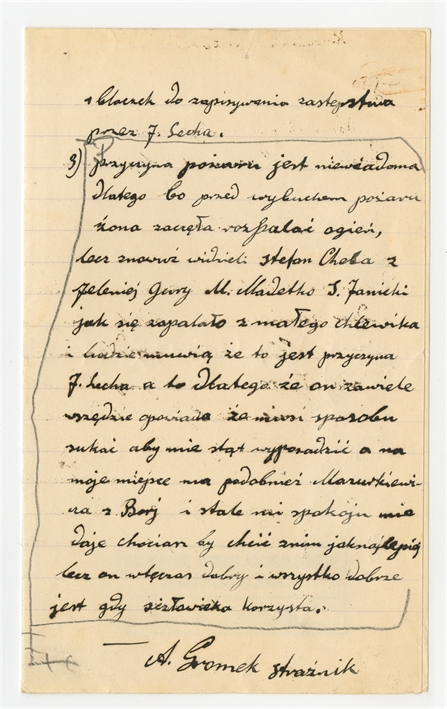 1 bloczek do zapisywania zastępstwa
przez J. Lecha.
3) Przyczyna pożaru jest niewiadoma
dlatego bo przed wybuchem pożaru
żona zaczęła rozpalać ogień,
lecz znowuż widzieli Stefan Cheba z
Jeleniej Góry M. Madetko S. Janicki
jak się zapalało z małego chlewika
i ludzie muwią że to jest przyczyna
J. Lecha a to dlatego że on zawiele
wszędzie opowiada że musi sposobu
sukać aby mie stąt wyposadzić a na
moje miejsce ma podobnież Mazurkiewi-
cza z i stale mi spokoju nie
daje chociarz by chcić znim jaknajlepiej
lecz on wtęczas dobry i wszystko dobrze
jest gdy szłowieka korzysta.
A. Gromek strażnik